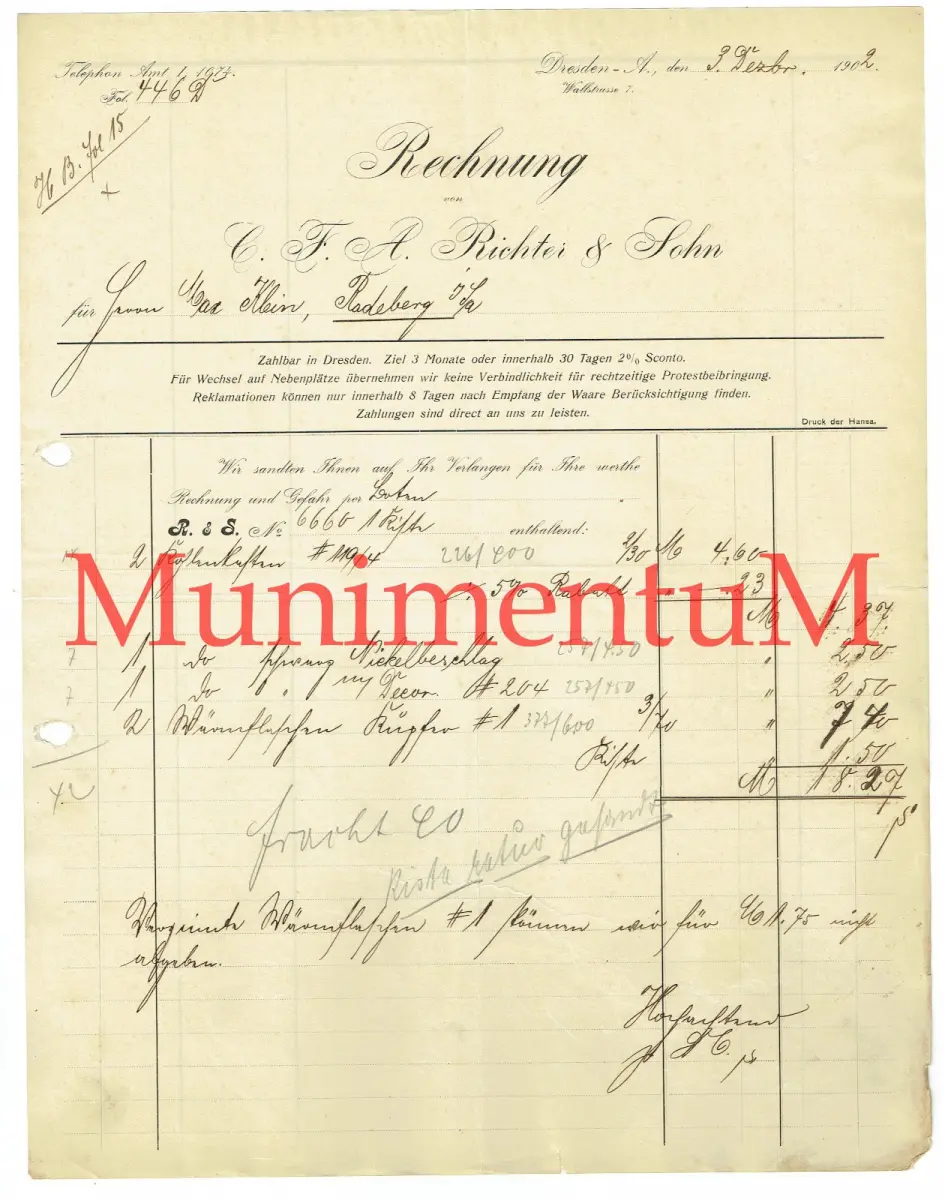 Telephon Amt 1, 1973.
Fol. 446 D
Dresden-A., den 3. Dezbr. 1902.
Wallstrasse 7.
H B. Fol 15
Rechnung
von
C. F. A. Richter & Sohn
für Herrn Max Klein, Radeberg i/Sa
Zahlbar in Dresden. Ziel 3 Monate oder innerhalb 30 Tagen 2% Sconto.
Für Wechsel auf Nebenplätze übernehmen wir keine Verbindlichkeit für rechtzeitige Protestbeibringung.
Reklamationen können nur innerhalb 8 Tagen nach Empfang der Waare Berücksichtigung finden.
Zahlungen sind direct an uns zu leisten.
Druck der Hansa.
Wir sandten Ihnen auf Ihr Verlangen für Ihre werthe
Rechnung und Gefahr per Boten
R. & S. No 6660 1 Kiste enthaltend:
2 Kohlenkasten # 119/4 226/400 2/30 M 4.60
% 5% Rabatt " -.23
M 4.37
1 do schwarz Nickelbeschlag 257/450 " 2.50
1 do " m/ Decor. # 204 257/450 " 2 50
2 Wärmflaschen Kupfer # 1 377/600 3/70 " 7 40
Kiste 1.50
M 18.27
MunimentuM
fracht 40
Kiste retur gesandt
Verzinnte Wärmflaschen # 1 können wir für M 1.75 nicht
abgeben.
Hochachtend